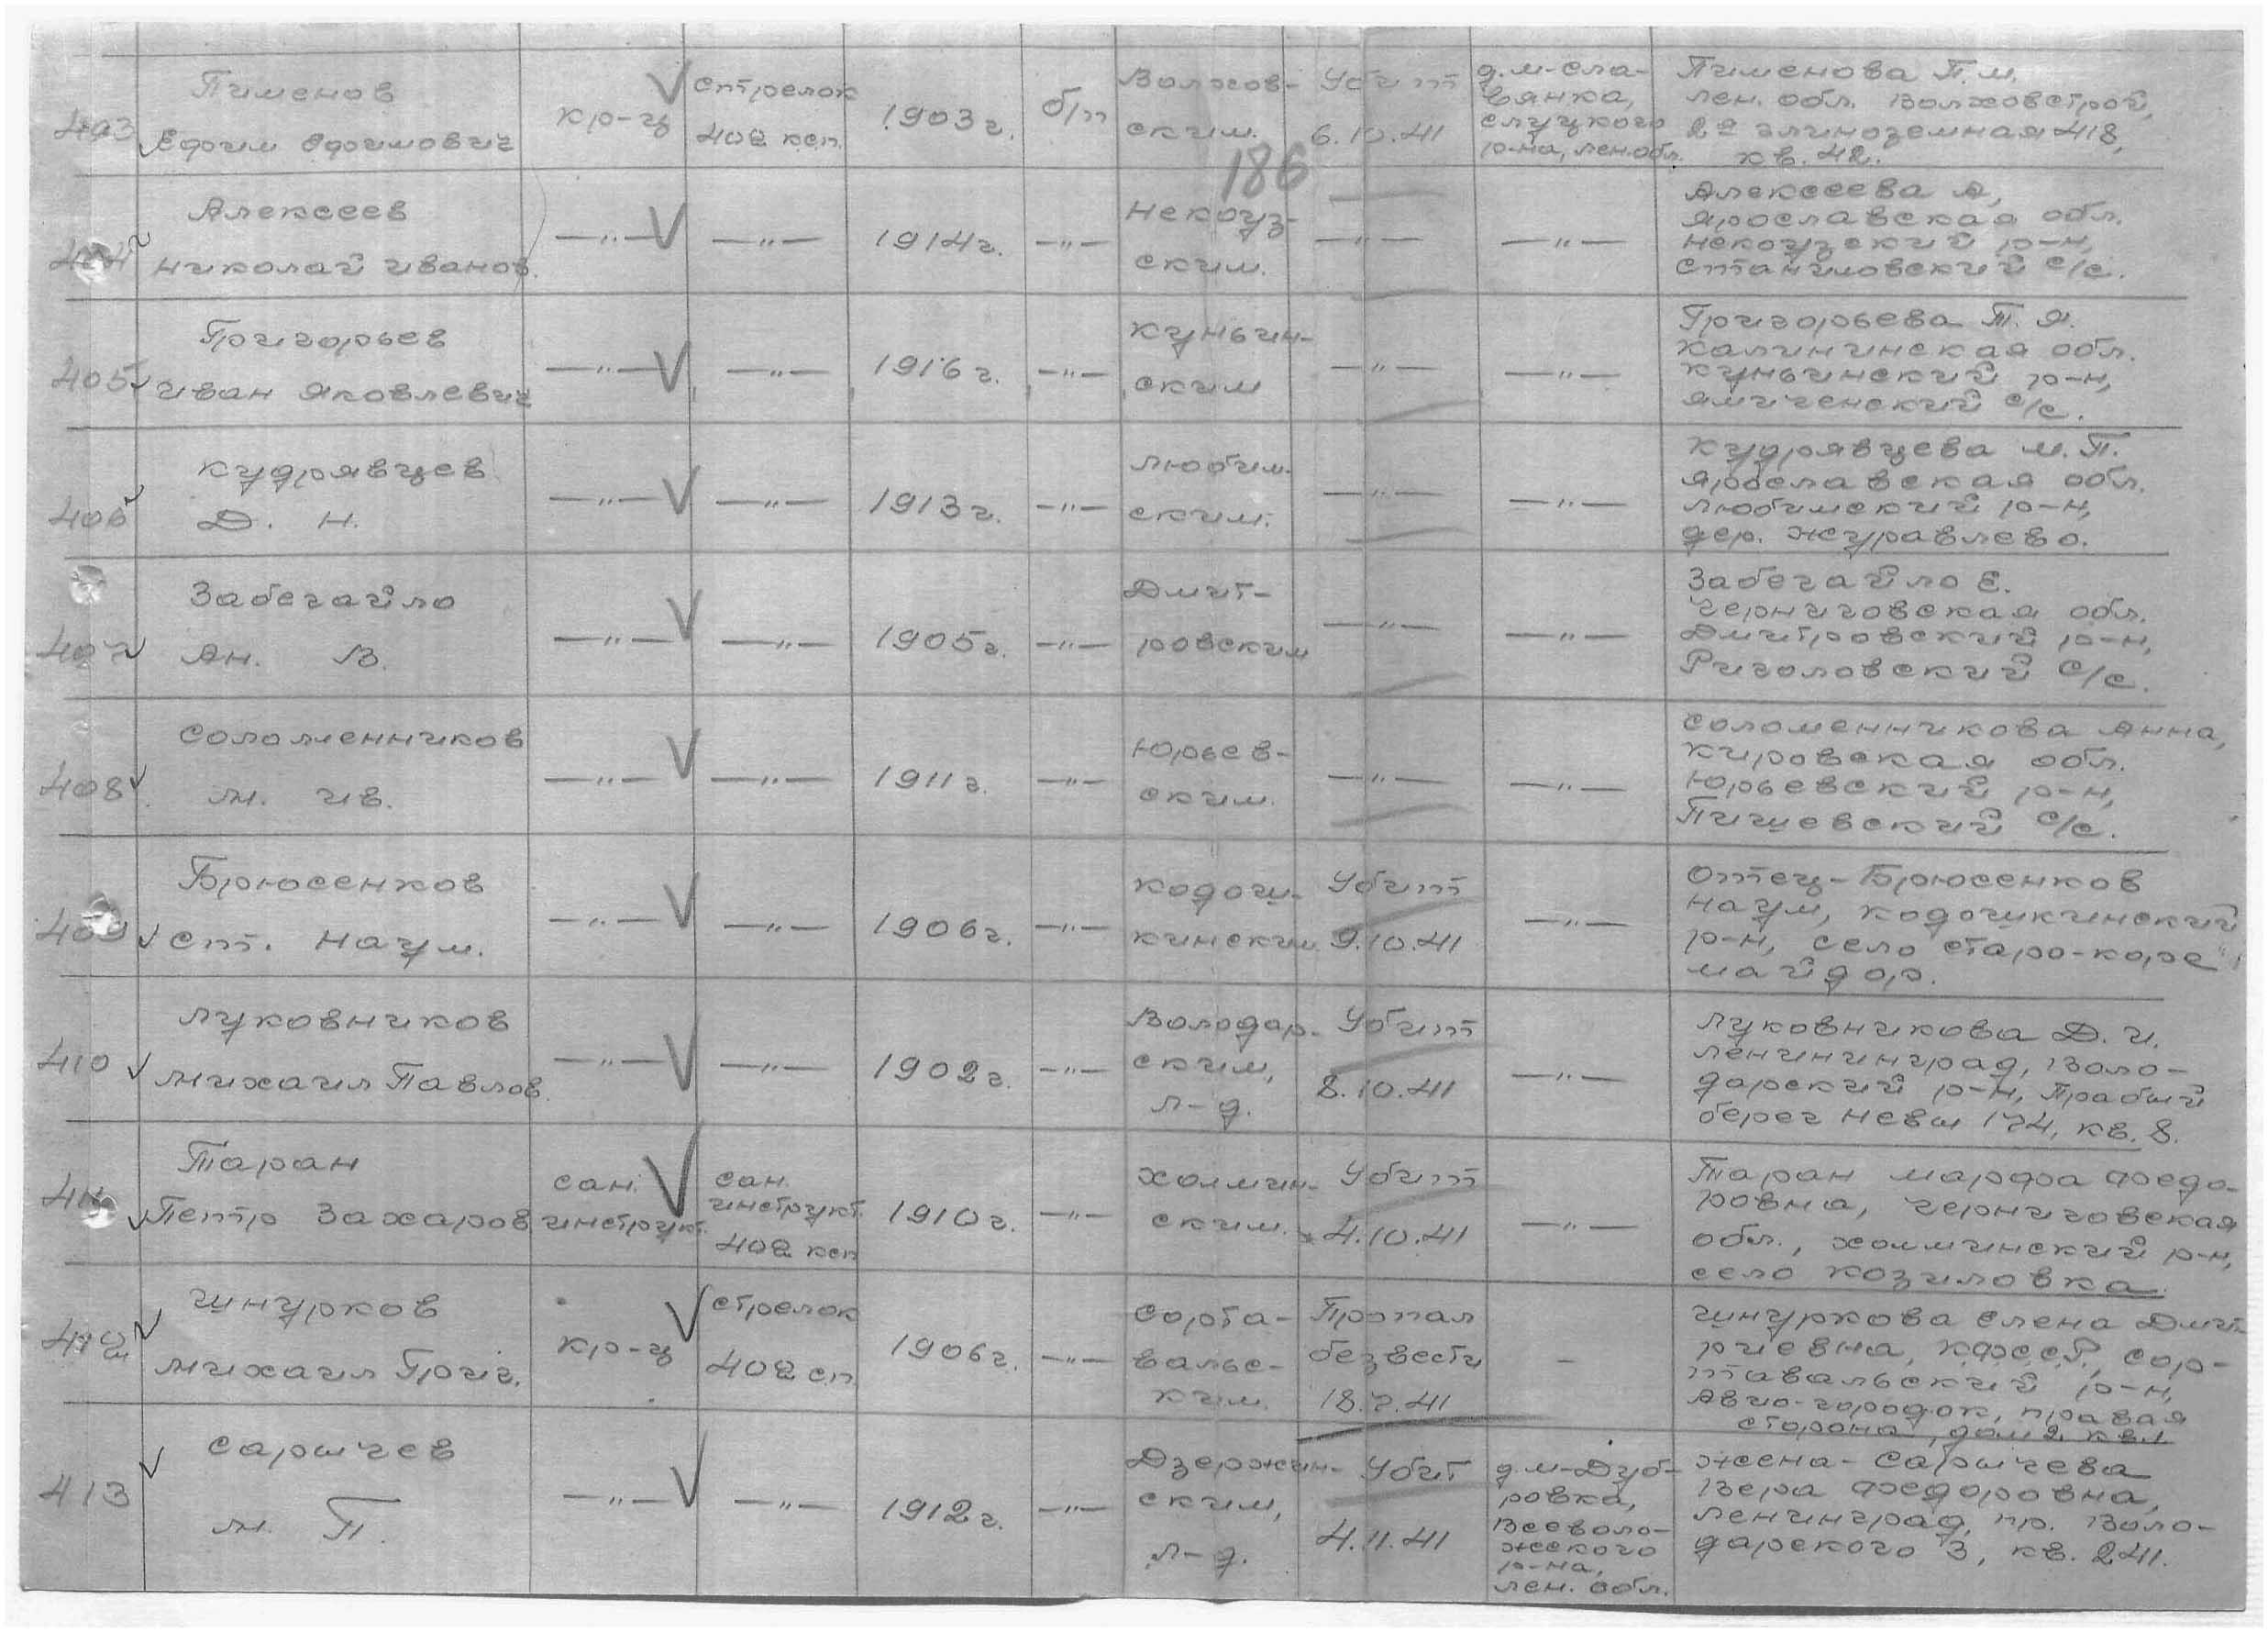 186
403 Пименов
Ефим Ефимович
кр-ц
стрелок
402 ксп.
1903 г.
б/п
Волхов-
ским.
Убит
6.10.41
д. м-Сла-
вянка,
Слуцкого
р-на, лен.обл.
Пименова П.М.
лен. обл. Волховстрой,
2я глиноземная 418,
кв. 42.
404 Алексеев
Николай Иванов.
—"— —"— 1914 г. —"—
Некоуз-
ским.
—"— —"—
Алексеева А,
Ярославская обл.
Некоузский р-н,
Станиловский с/с.
405 Григорьев
Иван Яковлевич
—"— —"— 1916 г. —"—
Куньин-
ским
—"— —"—
Григорьева Т. Я.
Калининская обл.
Куньинский р-н,
Ямиченский с/с.
406 Кудрявцев
Д. Н.
—"— —"— 1913 г. —"—
Любим-
ским.
—"— —"—
Кудрявцева М. П.
Ярославская обл.
Любимский р-н,
дер. Журавлево.
407 Забегайло
Ан. В.
—"— —"— 1905 г. —"—
Дмит-
ровским
—"— —"—
Забегайло Е.
Черниговская обл.
Дмитровский р-н,
Риголовский с/с.
408 Соломенников
М. Ив.
—"— —"— 1911 г. —"—
Юрьев-
ским.
—"— —"—
Соломенникова Анна,
Кировская обл.
Юрьевский р-н,
Пищевский с/с.
409 Брюсенков
Ст. Наум.
—"— —"— 1906 г. —"—
Кодош-
кинским
Убит
9.10.41
—"—
Отец-Брюсенков
Наум, Кодошкинский
р-н, село Старо-Коре
майдор.
410 Луковников
Михаил Павлов.
—"— —"— 1902 г. —"—
Володар-
ским,
Л-д.
Убит
8.10.41
—"—
Луковникова Д. И.
Ленининград, Воло-
дарский р-н, Правый
берег Невы 174, кв. 8.
411 Таран
Петр Захаров
сан.
инструкт.
сан.
инструкт.
402 ксп
1910 г. —"—
Холмин-
ским.
Убит
4.10.41
—"—
Таран Марфа Федо-
ровна, Черниговская
обл., Холминский р-н,
село Козиловка
412 Шнурков
Михаил Григ.
кр-ц
стрелок
402 сп.
1906 г. —"—
Сорта-
вальс-
ким.
Пропал
без вести
18.7.41
—
Шнуркова Елена Дмит-
риевна, КФССР, Сор-
тавальский р-н,
Авио-городок, правая
сторона, дом 2 кв 1
413 Сарычев
М. П.
—"— —"— 1912 г. —"—
Дзержин-
ским,
Л-д.
Убит
4.11.41
д. м-Дуб-
ровка,
Всеволо-
жского
р-на,
лен. обл.
жена-Сарычева
Вера Федоровна,
Ленинград, пр. Воло-
дарского 3, кв. 241.